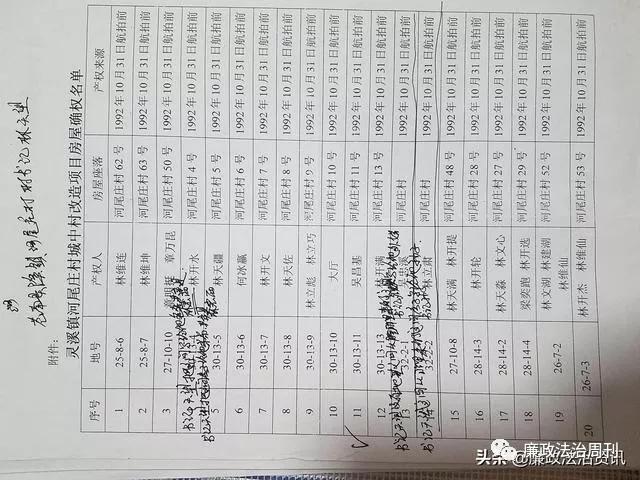 苍南县灵溪镇河尾庄村 村书记林天望
附件：
灵溪镇河尾庄村城中村改造项目房屋确权名单
序号 地号 产权人 房屋座落 产权来源
1 25-8-6 林维连 河尾庄村 62 号 1992 年 10 月 31 日航拍前
2 25-8-7 林维坤 河尾庄村 63 号 1992 年 10 月 31 日航拍前
3 27-10-10 章万昆 河尾庄村 50 号 1992 年 10 月 31 日航拍前
林开水 河尾庄村 4 号 1992 年 10 月 31 日航拍前
5 30-13-5 林天疆 河尾庄村 5 号 1992 年 10 月 31 日航拍前
6 30-13-6 何冰赢 河尾庄村 6 号 1992 年 10 月 31 日航拍前
7 30-13-7 林开文 河尾庄村 7 号 1992 年 10 月 31 日航拍前
8 30-13-8 林天佐 河尾庄村 8 号 1992 年 10 月 31 日航拍前
9 30-13-9 林立彪 林立巧 河尾庄村 9 号 1992 年 10 月 31 日航拍前
10 30-13-10 大厅 河尾庄村 10 号 1992 年 10 月 31 日航拍前
11 30-13-11 吴昌基 河尾庄村 11 号 1992 年 10 月 31 日航拍前
12 30-13-13 林开满 河尾庄村 13 号 1992 年 10 月 31 日航拍前
13 32-2-1 吴忠溪 河尾庄村 1992 年 10 月 31 日航拍前
14 32-2-2 林立肃 河尾庄村 1992 年 10 月 31 日航拍前
15 27-10-8 林天满 林开提 河尾庄村 48 号 1992 年 10 月 31 日航拍前
16 28-14-3 林开轮 河尾庄村 28 号 1992 年 10 月 31 日航拍前
17 28-14-2 林天淼 林文心 河尾庄村 27 号 1992 年 10 月 31 日航拍前
18 28-14-4 梁奕跑 林开选 河尾庄村 29 号 1992 年 10 月 31 日航拍前
19 26-7-2 林文湖 林建湖 林维仙 河尾庄村 52 号 1992 年 10 月 31 日航拍前
20 26-7-3 林开杰 林维仙 河尾庄村 53 号 1992 年 10 月 31 日航拍前
廉政法治周刊
头条 @廉政法治资讯